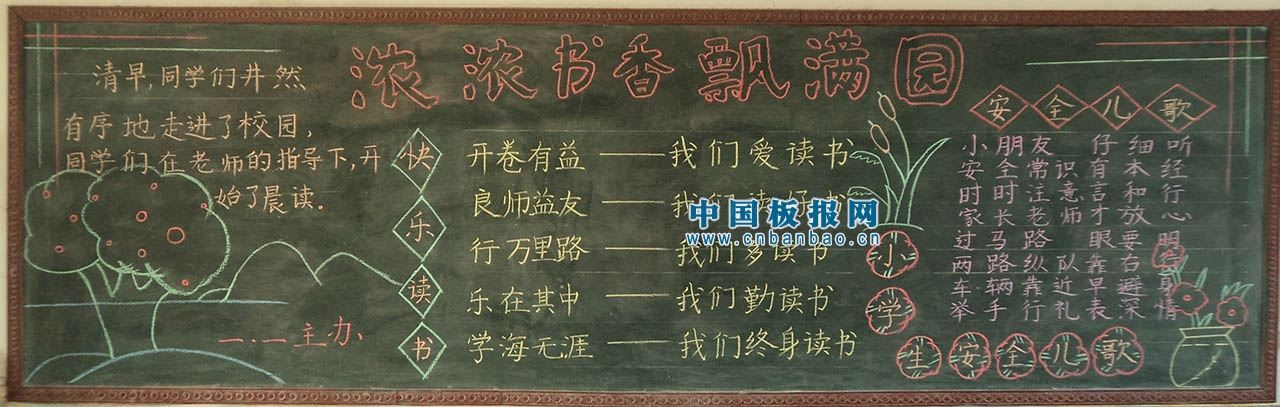 浓浓书香飘满园
清早,同学们井然
有序地走进了校园,
同学们在老师的指导下,开
始了晨读.
一.一主办
快乐读书
开卷有益——我们爱读书
良师益友——我们读好书
行万里路——我们多读书
乐在其中——我们勤读书
学海无涯——我们终身读书
中国板报网
www.cnbanbao.cn
安全儿歌
小朋友 仔细听
安全常识有本经
时时注意言和行
家长老师才放心
过马路 眼要明
两路纵队靠右
车辆靠近早避
举手行礼表深情
小学生安全儿歌